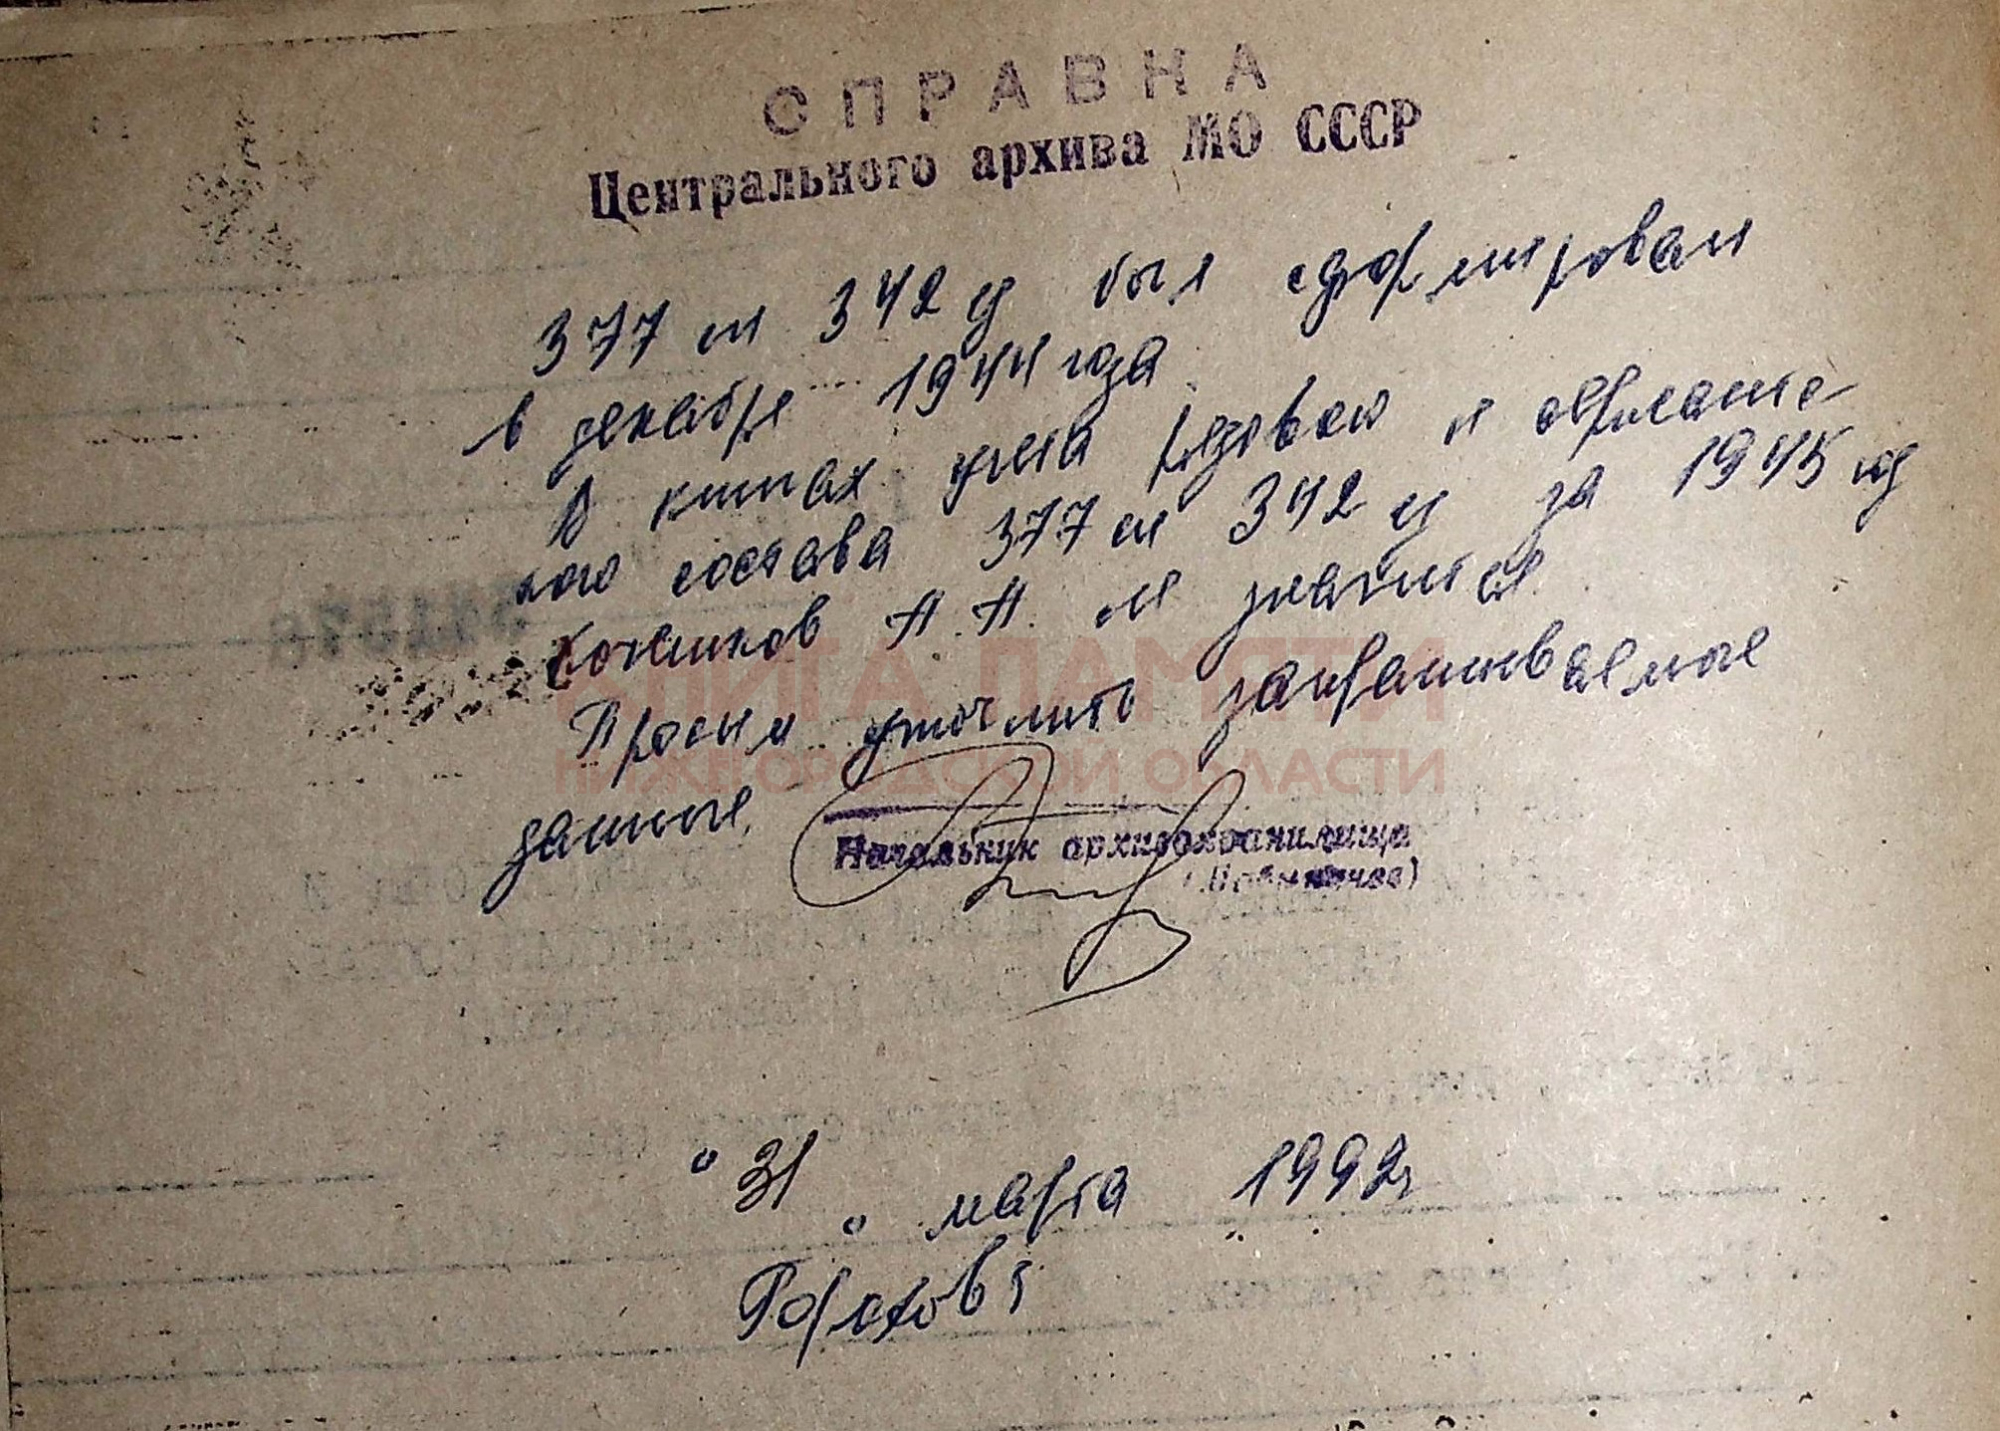 СПРАВКА
Центрального архива МО СССР
377 сп 342 сд был сформирован
в декабре 1944 года
В книгах учета рядового и сержантс-
кого состава 377 сп 342 сд за 1945 год
Кочешков А.А. не значится
Просим уточнить запрашиваемые
данные.
КНИГА ПАМЯТИ
НИЖЕГОРОДСКОЙ ОБЛАСТИ
Начальник архивохранилища
"31" марта 1992г